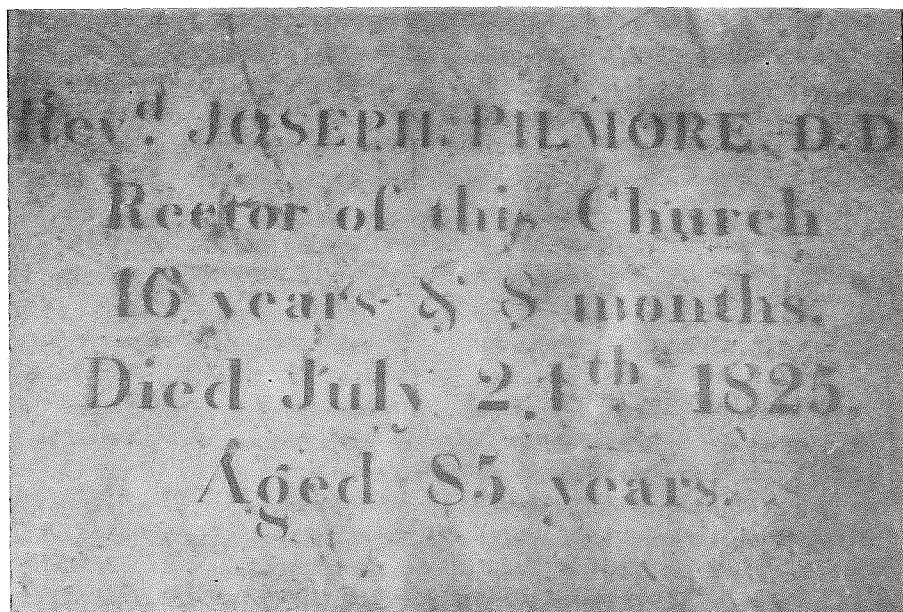 Revd. JOSEPH PILMORE, D.D
Rector of this Church
16 years & 8 months.
Died July 24th 1825.
Aged 85 years.